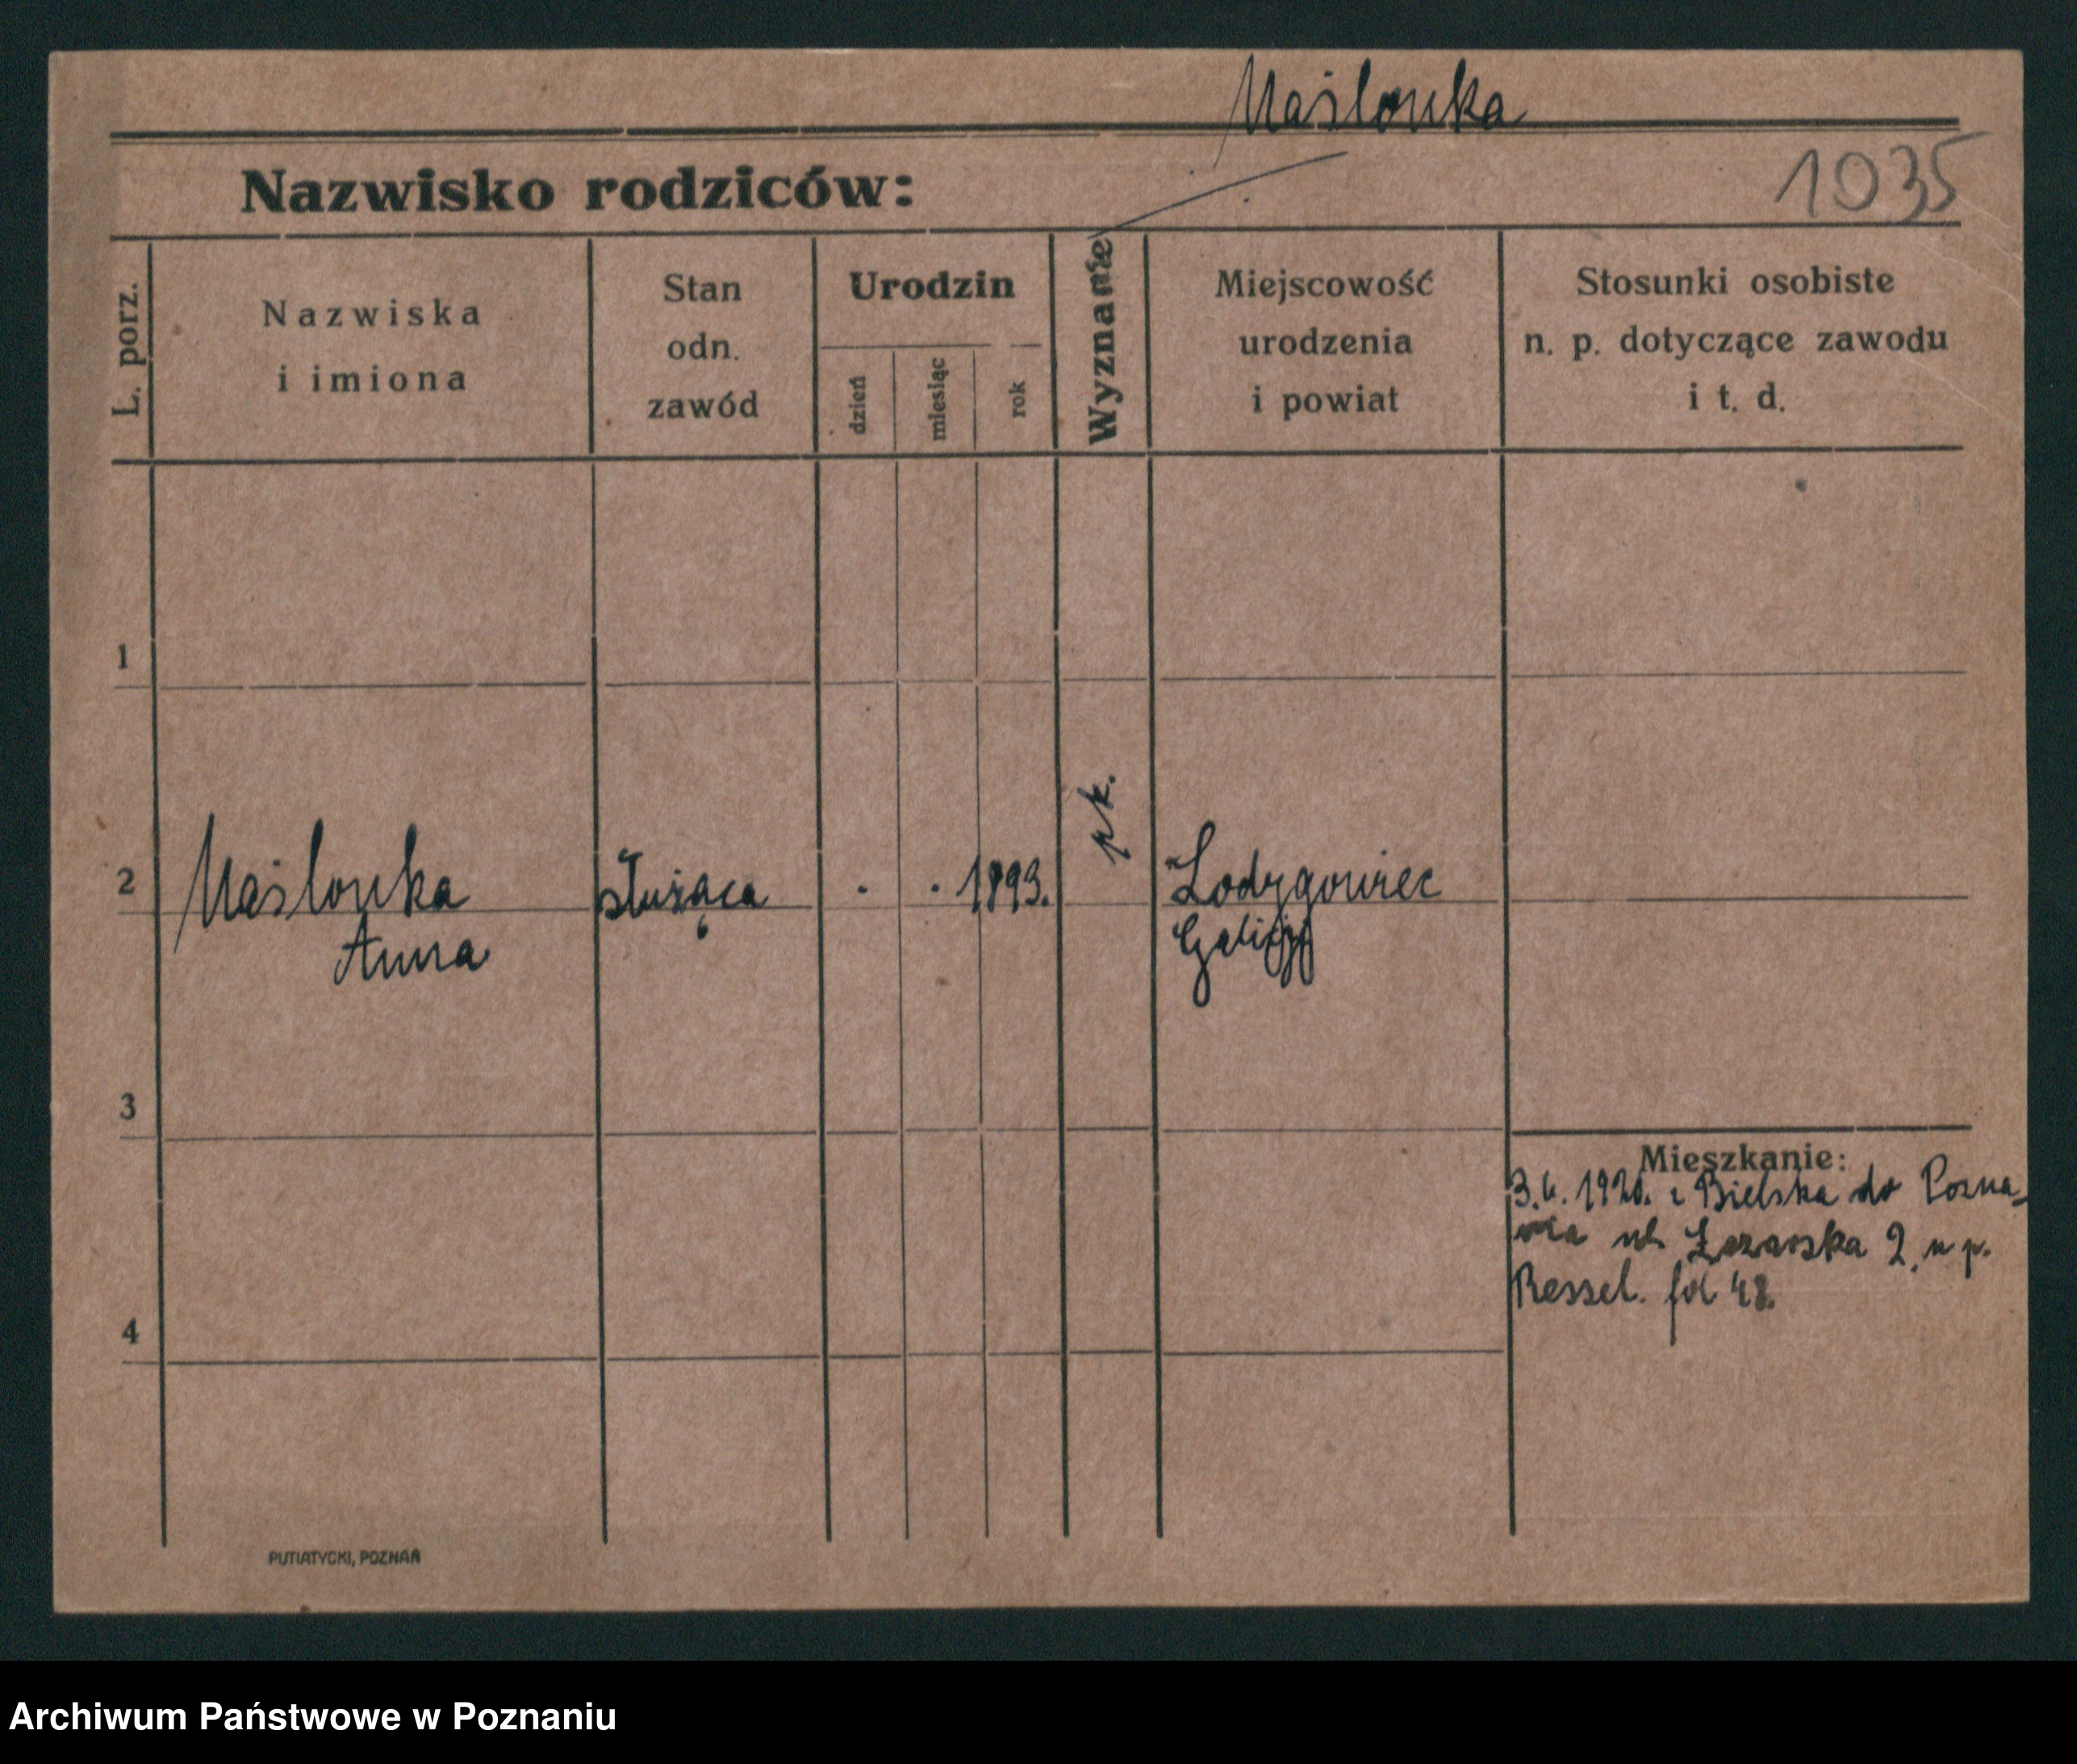 Maślonka
Nazwisko rodziców:
1035
L. porz.
Nazwiska
i imiona
Stan
odn.
zawód
Urodzin
dzień
miesiąc
rok
Wyznanie
Miejscowość
urodzenia
i powiat
Stosunki osobiste
n. p. dotyczące zawodu
i t. d.
1
2
Maślonka
Anna
służąca
. . 1893.
rk.
Lodygowiec
3
Mieszkanie:
1920. z Bielska do Pozna-
nia ul. Łazarska 2. u p.
Ressel. fol 48.
4
PUTIATYCKI, POZNAŃ
Archiwum Państwowe w Poznaniu